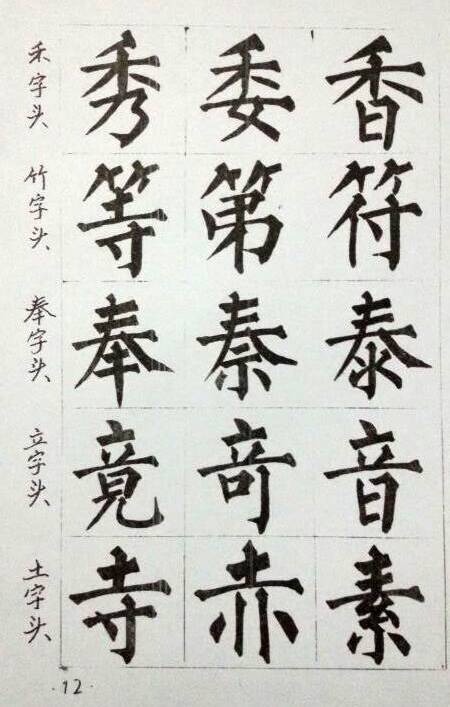 禾字头 秀 委 香
竹字头 等 第 符
奉字头 奉 秦 泰
立字头 竟 竒 音
土字头 寺 赤 素
·12·